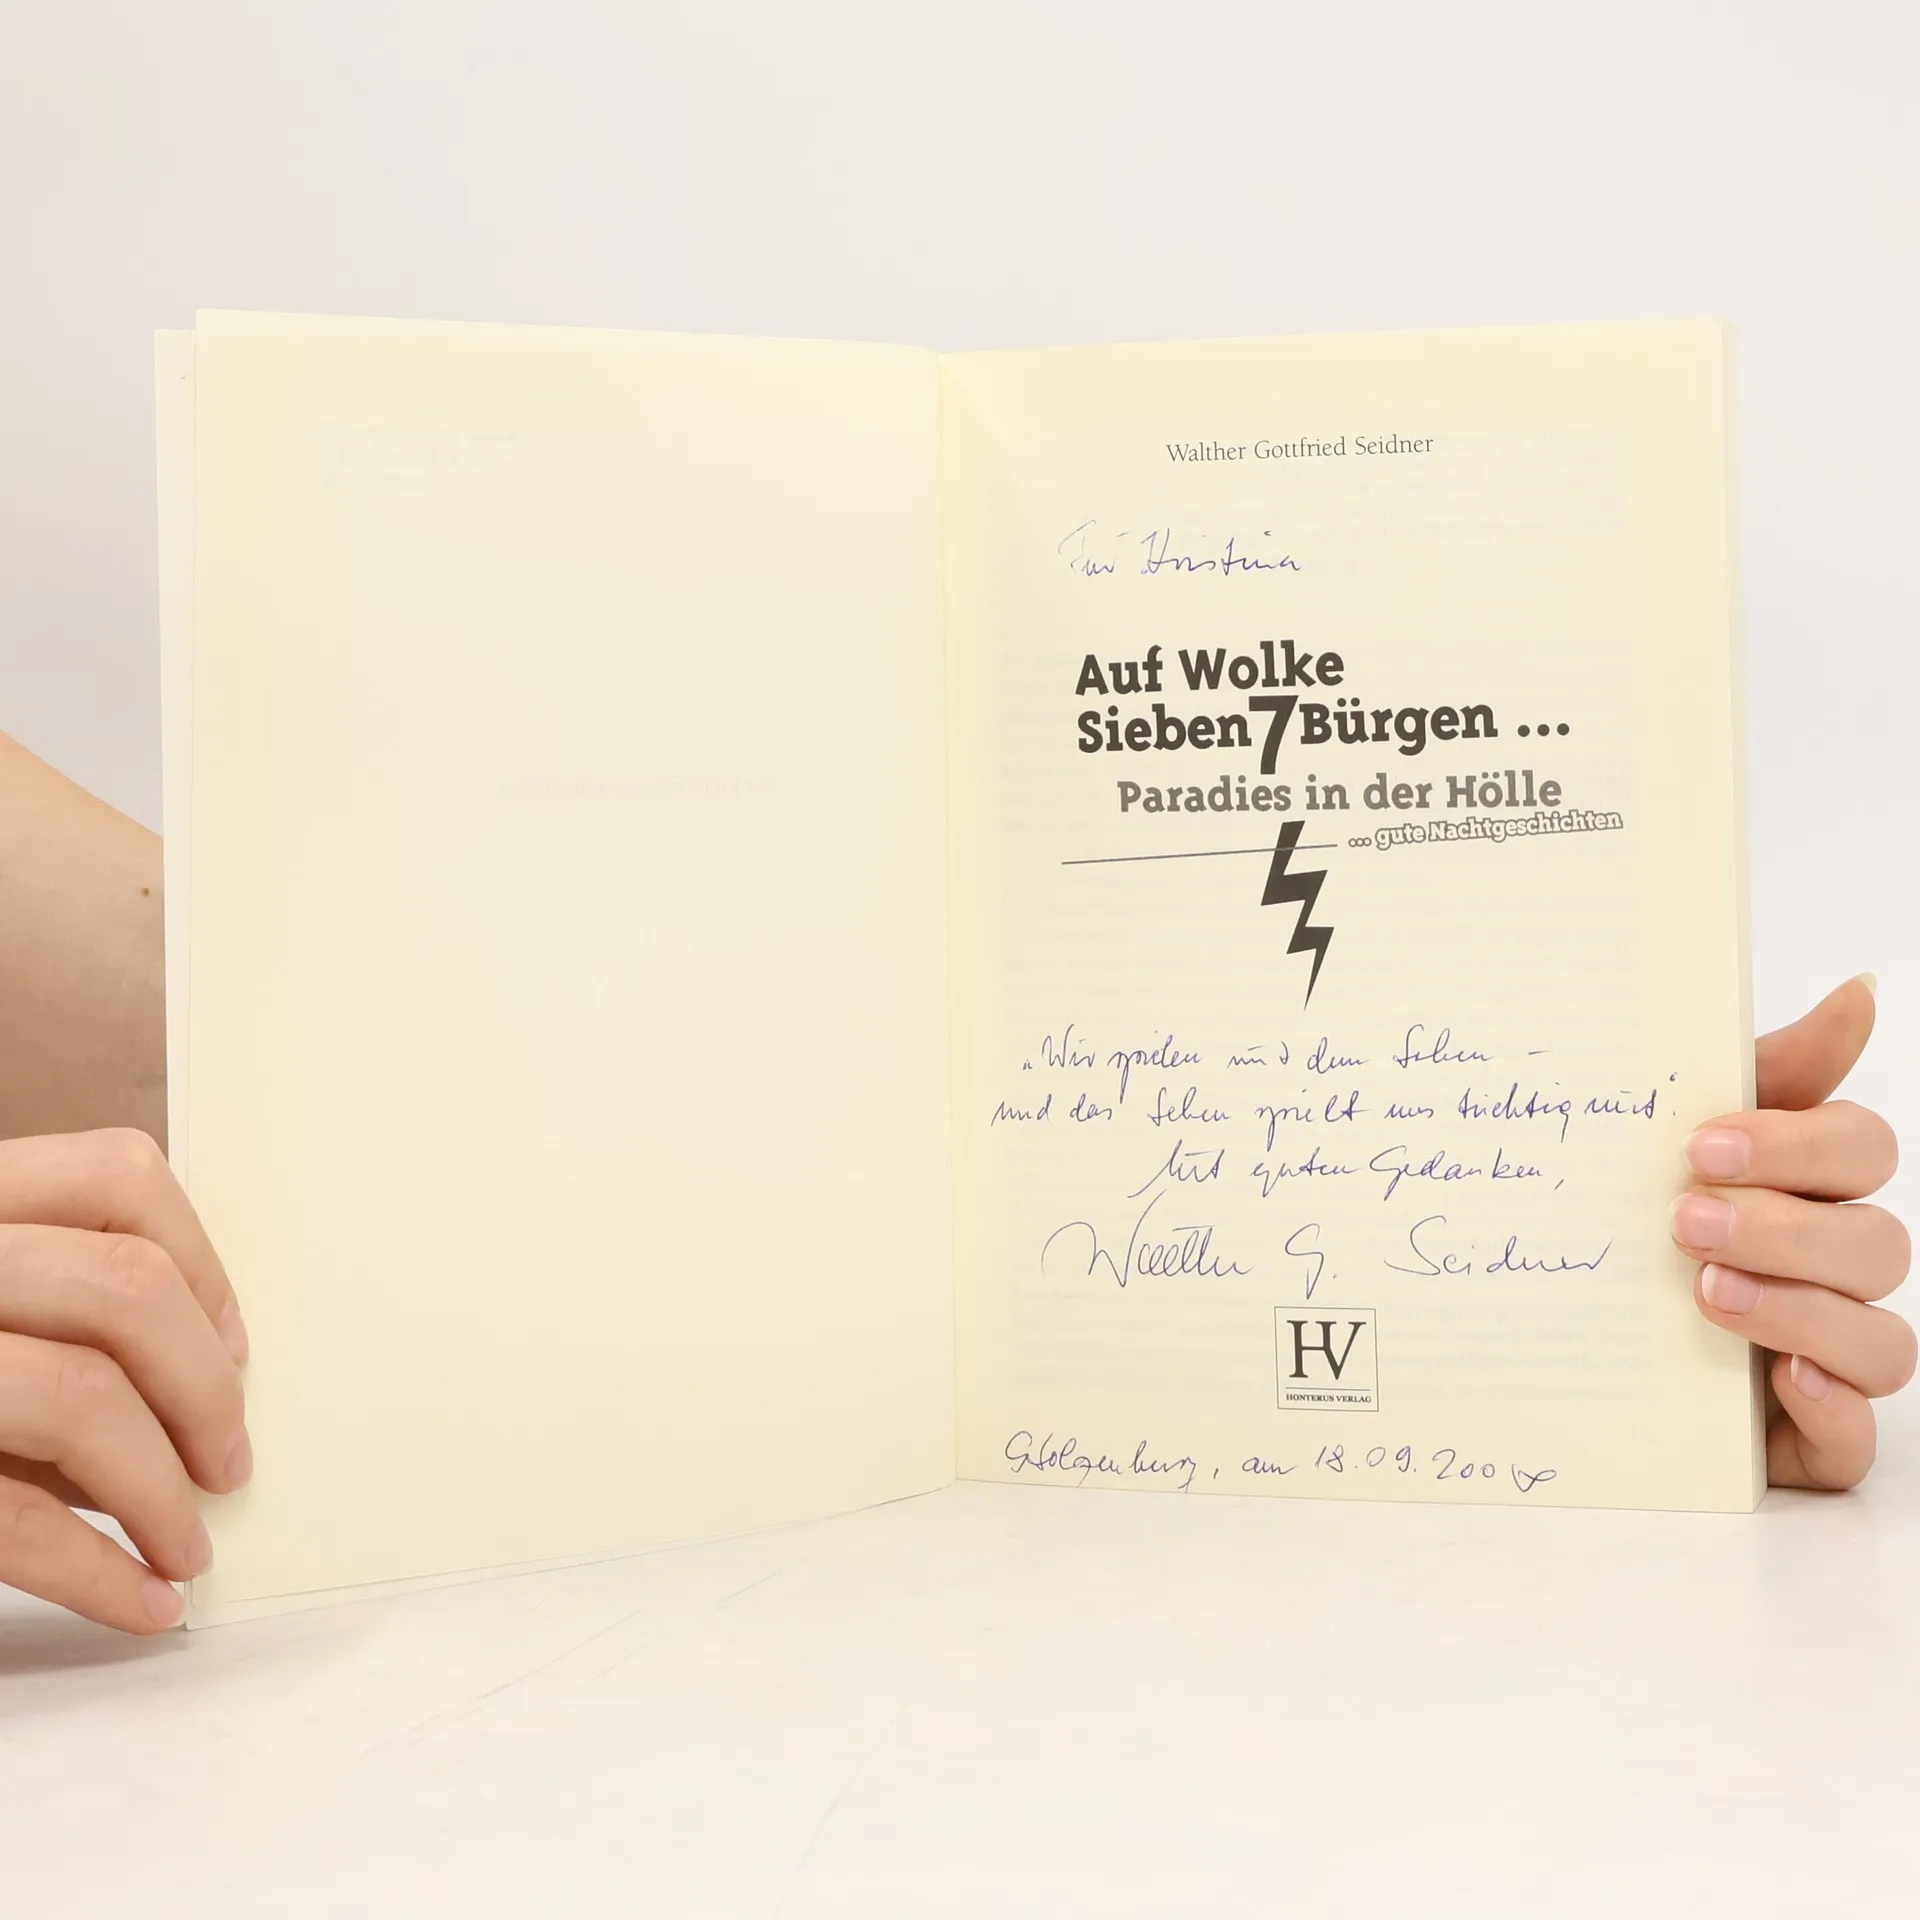 Walther Gottfried Seidner
Für Kristina
Auf Wolke
Sieben7Bürgen ...
Paradies in der Hölle
... gute Nachtgeschichten
„Wir spielen mit dem Leben –
und das Leben spielt uns tüchtig mit“.
Mit guten Gedanken,
Walther G. Seidner
HV
HONTERUS VERLAG
Stolzenburg, am 18.09.200